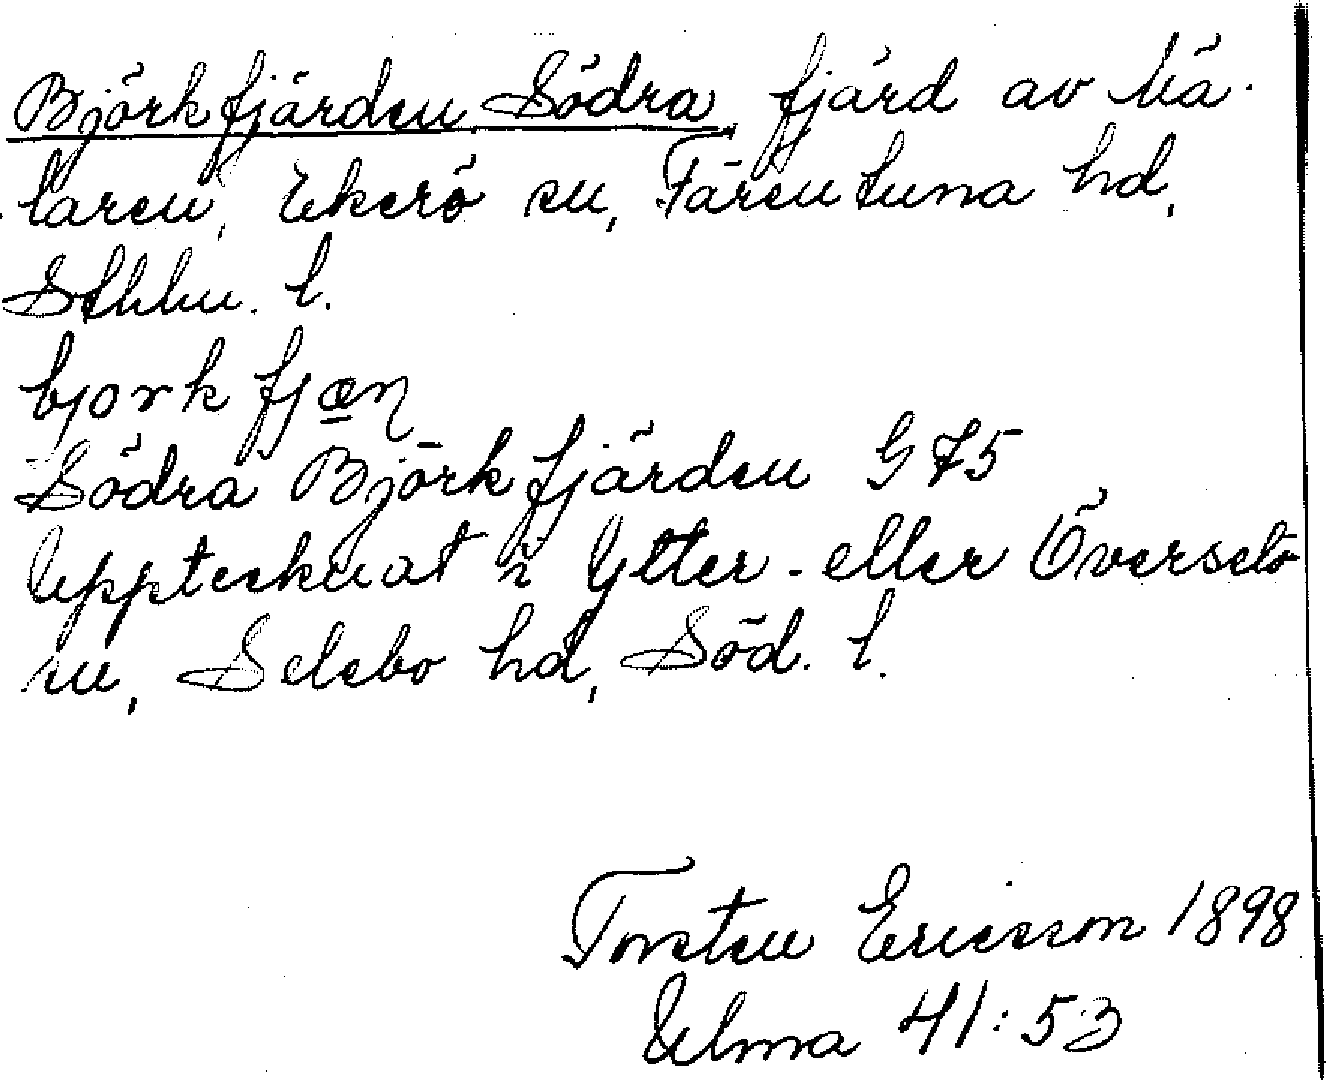 Björkfjärden, Södra, fjärd av Mä-
laren, Ekerö sn, Färentuna hd,
Sthlm. l.
bjorkfjæn
Södra Björkfjärden G 75
Upptecknat i Ytter- eller Överselö
sn, Selebo hd, Söd. l.
Torsten Ericsson 1898
Ulma 41:53